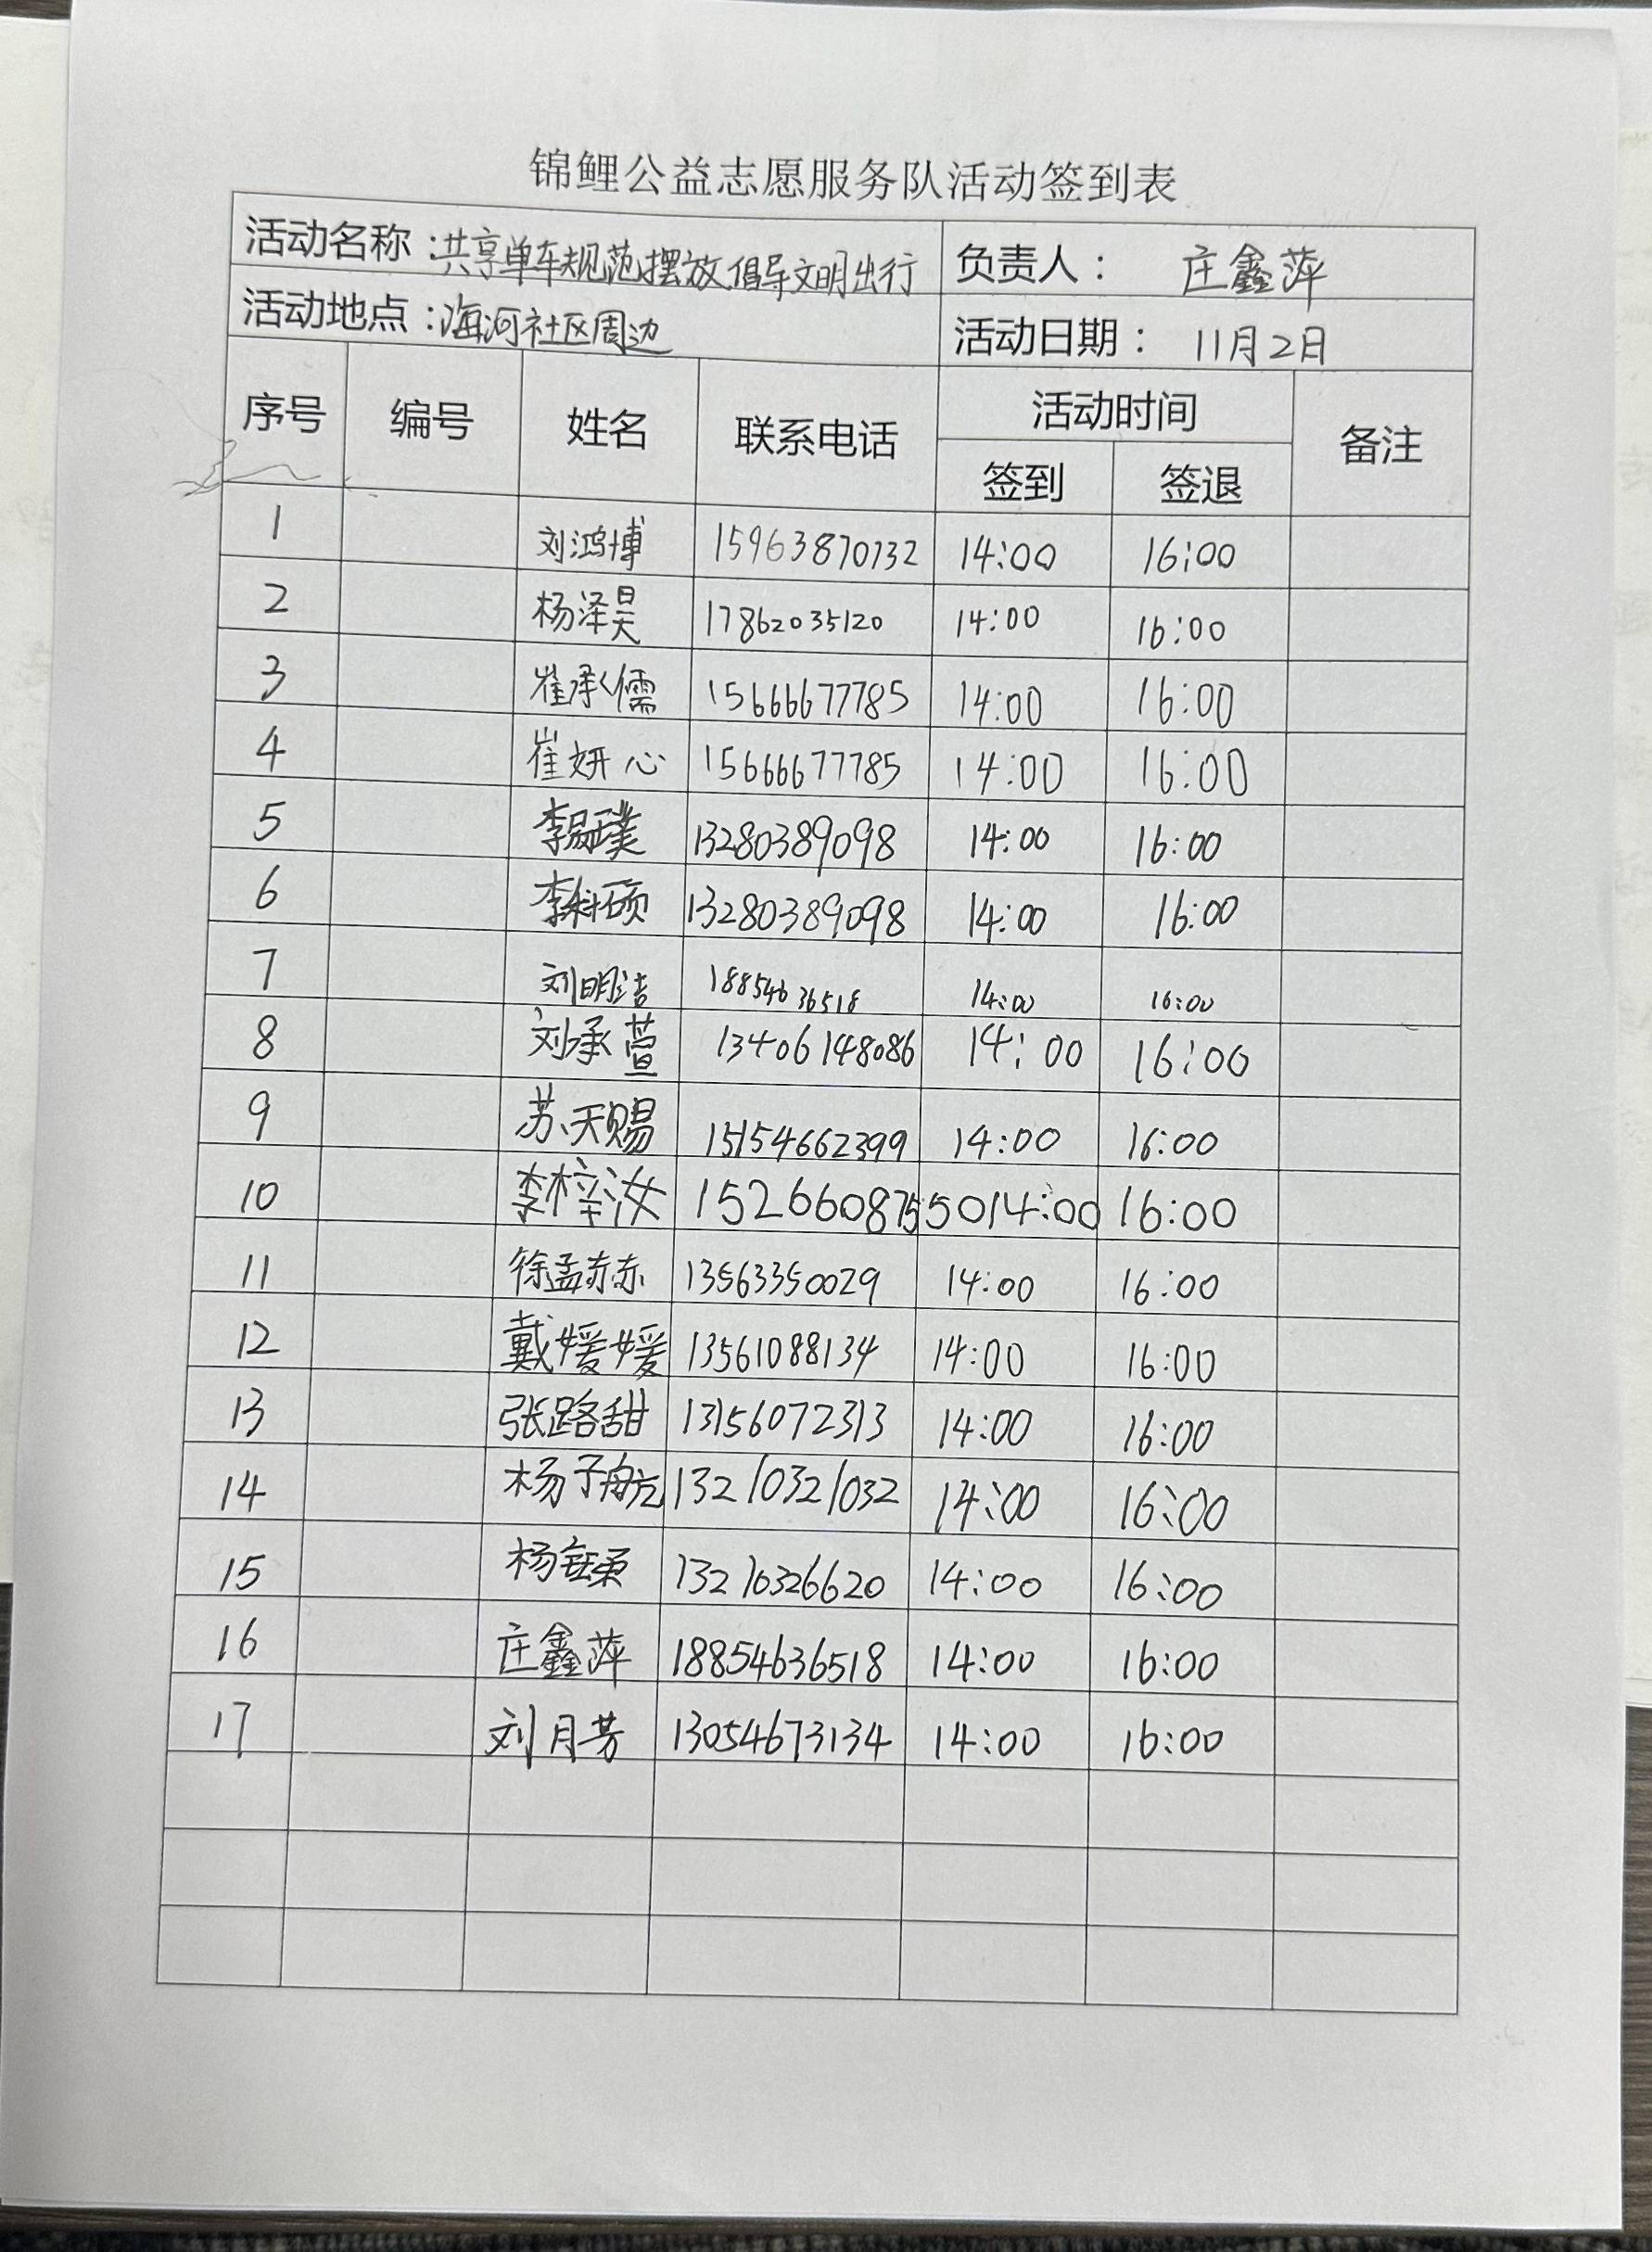 锦鲤公益志愿服务队活动签到表
活动名称：共享单车规范摆放倡导文明出行 负责人： 庄鑫萍
活动地点：海河社区周边 活动日期： 11月2日
序号 编号 姓名 联系电话 活动时间 备注
签到 签退
1 刘鸿博 15963870732 14:00 16:00
2 杨泽昊 17862035120 14:00 16:00
3 崔承儒 15666677785 14:00 16:00
4 崔妍心 15666677785 14:00 16:00
5 李璞 13280389098 14:00 16:00
6 李硕 13280389098 14:00 16:00
7 刘明洁 18854636518 14:00 16:00
8 刘承萱 13406148086 14:00 16:00
9 苏天赐 15154662399 14:00 16:00
10 李梓汝 15266087550 14:00 16:00
11 徐孟赤赤 13563350029 14:00 16:00
12 戴媛媛 13561088134 14:00 16:00
13 张路甜 13156072313 14:00 16:00
14 杨子航 13210321032 14:00 16:00
15 杨钰荣 13210326620 14:00 16:00
16 庄鑫萍 18854636518 14:00 16:00
17 刘月芳 13054673134 14:00 16:00